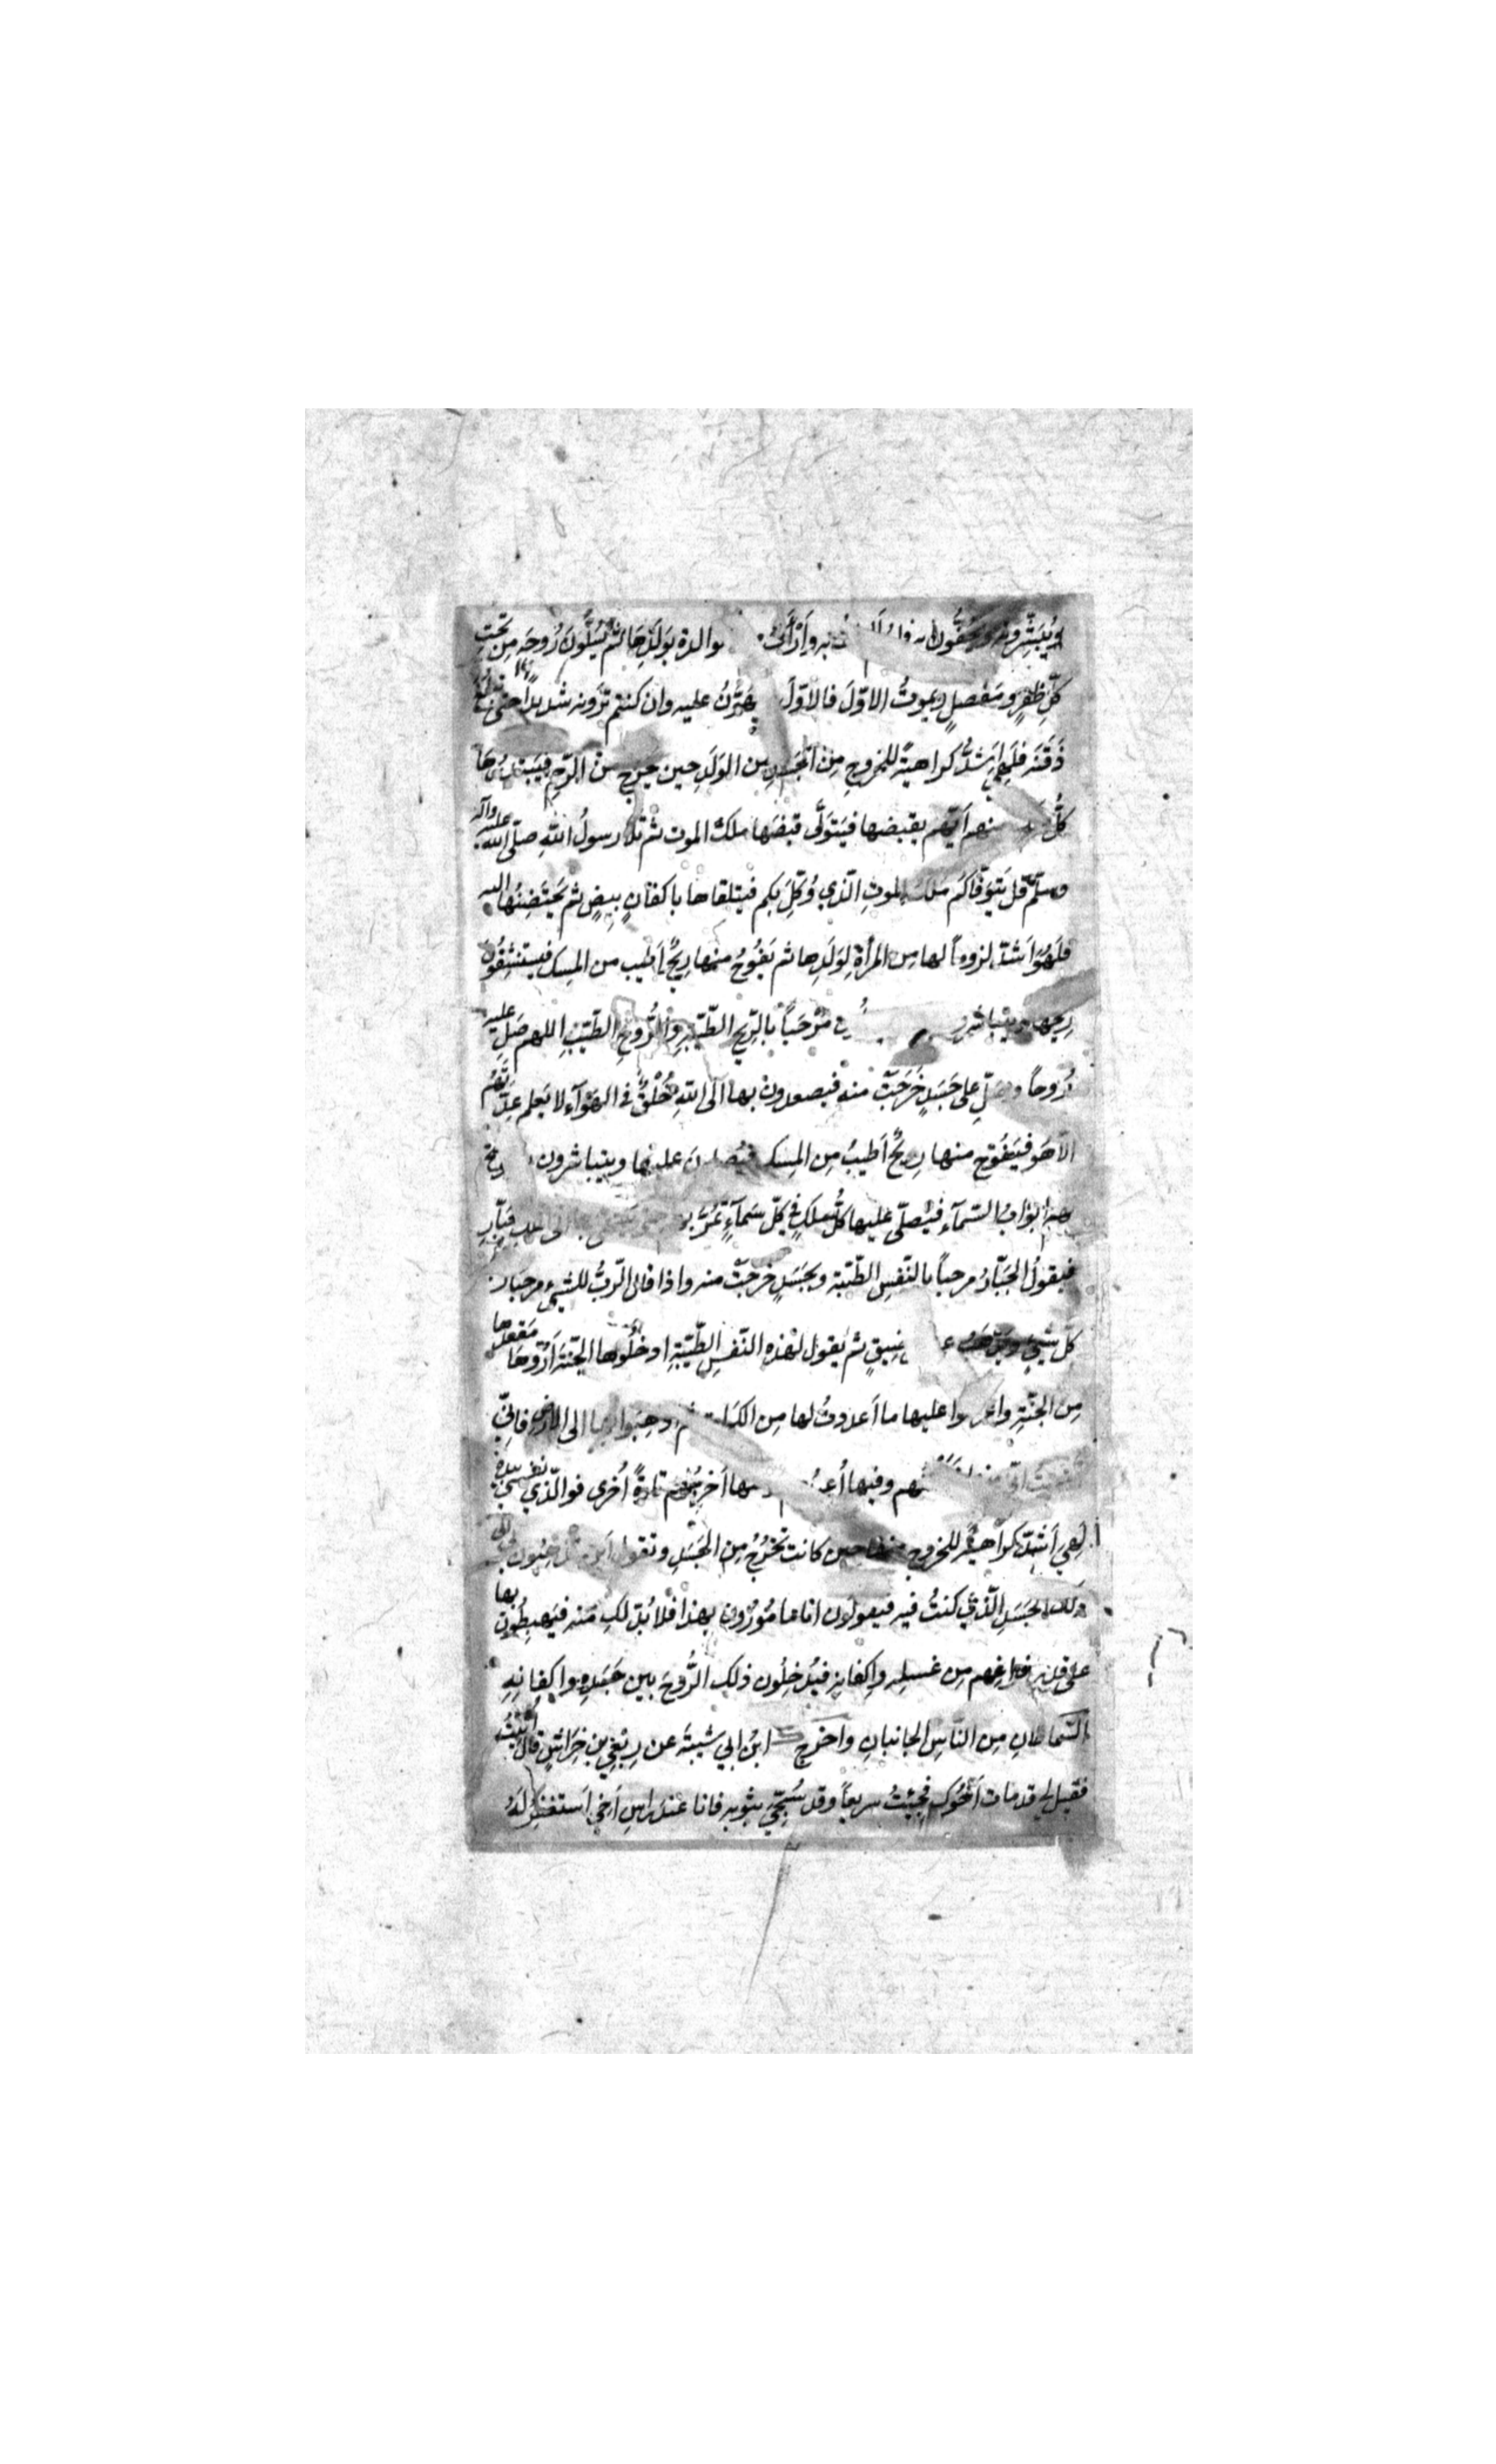 ويُبَشِّرونه ويحفُّون به وأرْأَفُ والدة بوَلَدِهَا ثم يَسُلُّونَ رُوحَه مِن تحتِ
كلِّ ظفرٍ ومفصلٍ ويموتُ الاوّلَ فالاوّلَ يهَوَّنُ عليه وان كنتم تَرَونه شديداً حتى تبلغ
ذَقَنَه فلَهِيَ اَشدُّ كراهيةً للخروجِ مِن الجسدِ من الوَلَدِ حين يخرج من الرّحِمِ فيَبتدرُهَا
كلُّ منهم اَيّهم يقبضها فيَتَولَّى قبضَها ملكُ الموت ثم تلا رسولُ اللهِ صلّى الله عليه وآله
وسلّم قل يَتَوَفّاكم مَلَكُ الموتِ الّذي وُكِّلَ بكم فيتلقاها باكفانٍ بيضٍ ثم يَحتَضِنُها اليه
فلَهُوَ اَشدّ لزوماً لها من المرأة لِوَلَدِها ثم يَفُوحُ منها رِيحٌ اَطيب من المِسك فيستنشِقُون
رِيحها ويتباشرون مَرْحَباً بالرِّيحِ الطّيّبةِ والرُّوحِ الطّيّبِ اللهم صَلِّ عليه
رُوحاً وصَلِّ على جَسَدٍ خَرَجَتْ منه فيصعدون بها الى اللهِ خَلْقٌ في الهَوَآءِ لا يَعلم عِدّتَهُم
الاّ هَو فيَفُوح منها رِيحٌ اَطيبُ مِن المِسك فيُصلّونَ عليها ويتباشرون
ابوابُ السّمآءِ فيُصلّى عليها كلُّ مَلَكٍ في كلّ سَمآءٍ تَمُرّ
فيقولُ الجبّارُ مرحباً بالنّفسِ الطّيّبة وبجَسَدٍ خَرَجَتْ منه واذا قال الرّبُّ للشيء مرحبا
كلّ شيءٍ ضِيقٍ ثم يقول لهذه النّفسِ الطّيّبةِ ادخُلُوها الجنّةَ اَرُوهَا مَقعدها
مِن الجنّةِ واعرضوا عليها ما اَعددتُ لها مِن الكرامة ثم اذهبوا بها الى الارض فانّي
منها خلقتُهم وفيها اُعيدهم ومنها اُخرِجُهم تارةً اُخرى فوالّذي نفسي بيده
لَهِيَ اَشَدّ كراهيةً للخروج منها حين كانت تَخرُجُ مِن الجَسَدِ وتقول اَين تذهبُون بي الى
ذلك الجَسَدِ الّذي كنتُ فيه فيقولون انا مامُورُون بهذا فلا بُدّ لكِ منه فيَهبِطُون بها
على قدرِ فراغِهم مِن غسلِه واكفانِه فيُدخِلُون ذلك الرُّوحَ بين جَسَدِه واكفانِهِ
السّماطانِ مِن النّاسِ الجانبانِ واخرج ابنُ ابي شيبةَ عن رِبْعِيّ بن حِرَاشٍ قال اُتِيتُ
فقيل لي قد مات اَخُوك فجِئتُ سريعاً وقد سُجِّيَ بثوبه فانا عند راسِ اَخي اَستغفِرُ لَهُ